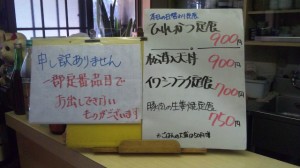 申し訳ありません
一部定番品目で
お出しできない
ものがございます
本日の日替わり定食
ひれかつ定食
900円
松茸入天丼
900円
イワシフライ定食
700円
豚肉の生姜焼定食
750円